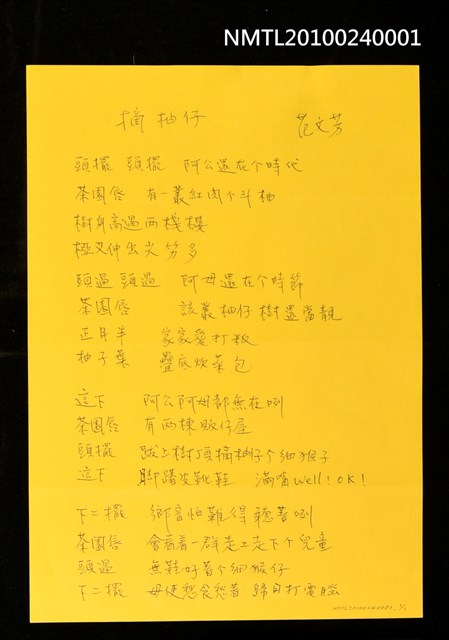 NMTL20100240001
摘柚仔
范文芳
頭擺 頭擺 阿公還在个時代
茶園唇 有一叢紅肉个斗柚
樹身高過兩棧樓
椏又伸出尖笏多
頭過 頭過 阿母還在个時節
茶園唇 該叢柚仔樹還當靚
正月半 家家愛打粄
柚子葉 疊底炊菜包
這下 阿公阿姆都無在咧
茶園唇 有兩棟販仔屋
頭擺 跋上樹頂摘柚子个細猴子
這下 腳著皮靴鞋 滿嘴well!OK!
下二擺 鄉音怕難得聽著咧
茶園唇 會看著一群走上走下个兒童
頭過 無鞋好著个細猴仔
下二擺 毋使愁食愁著 歸日打電腦
NMTL20100240001, 1/1